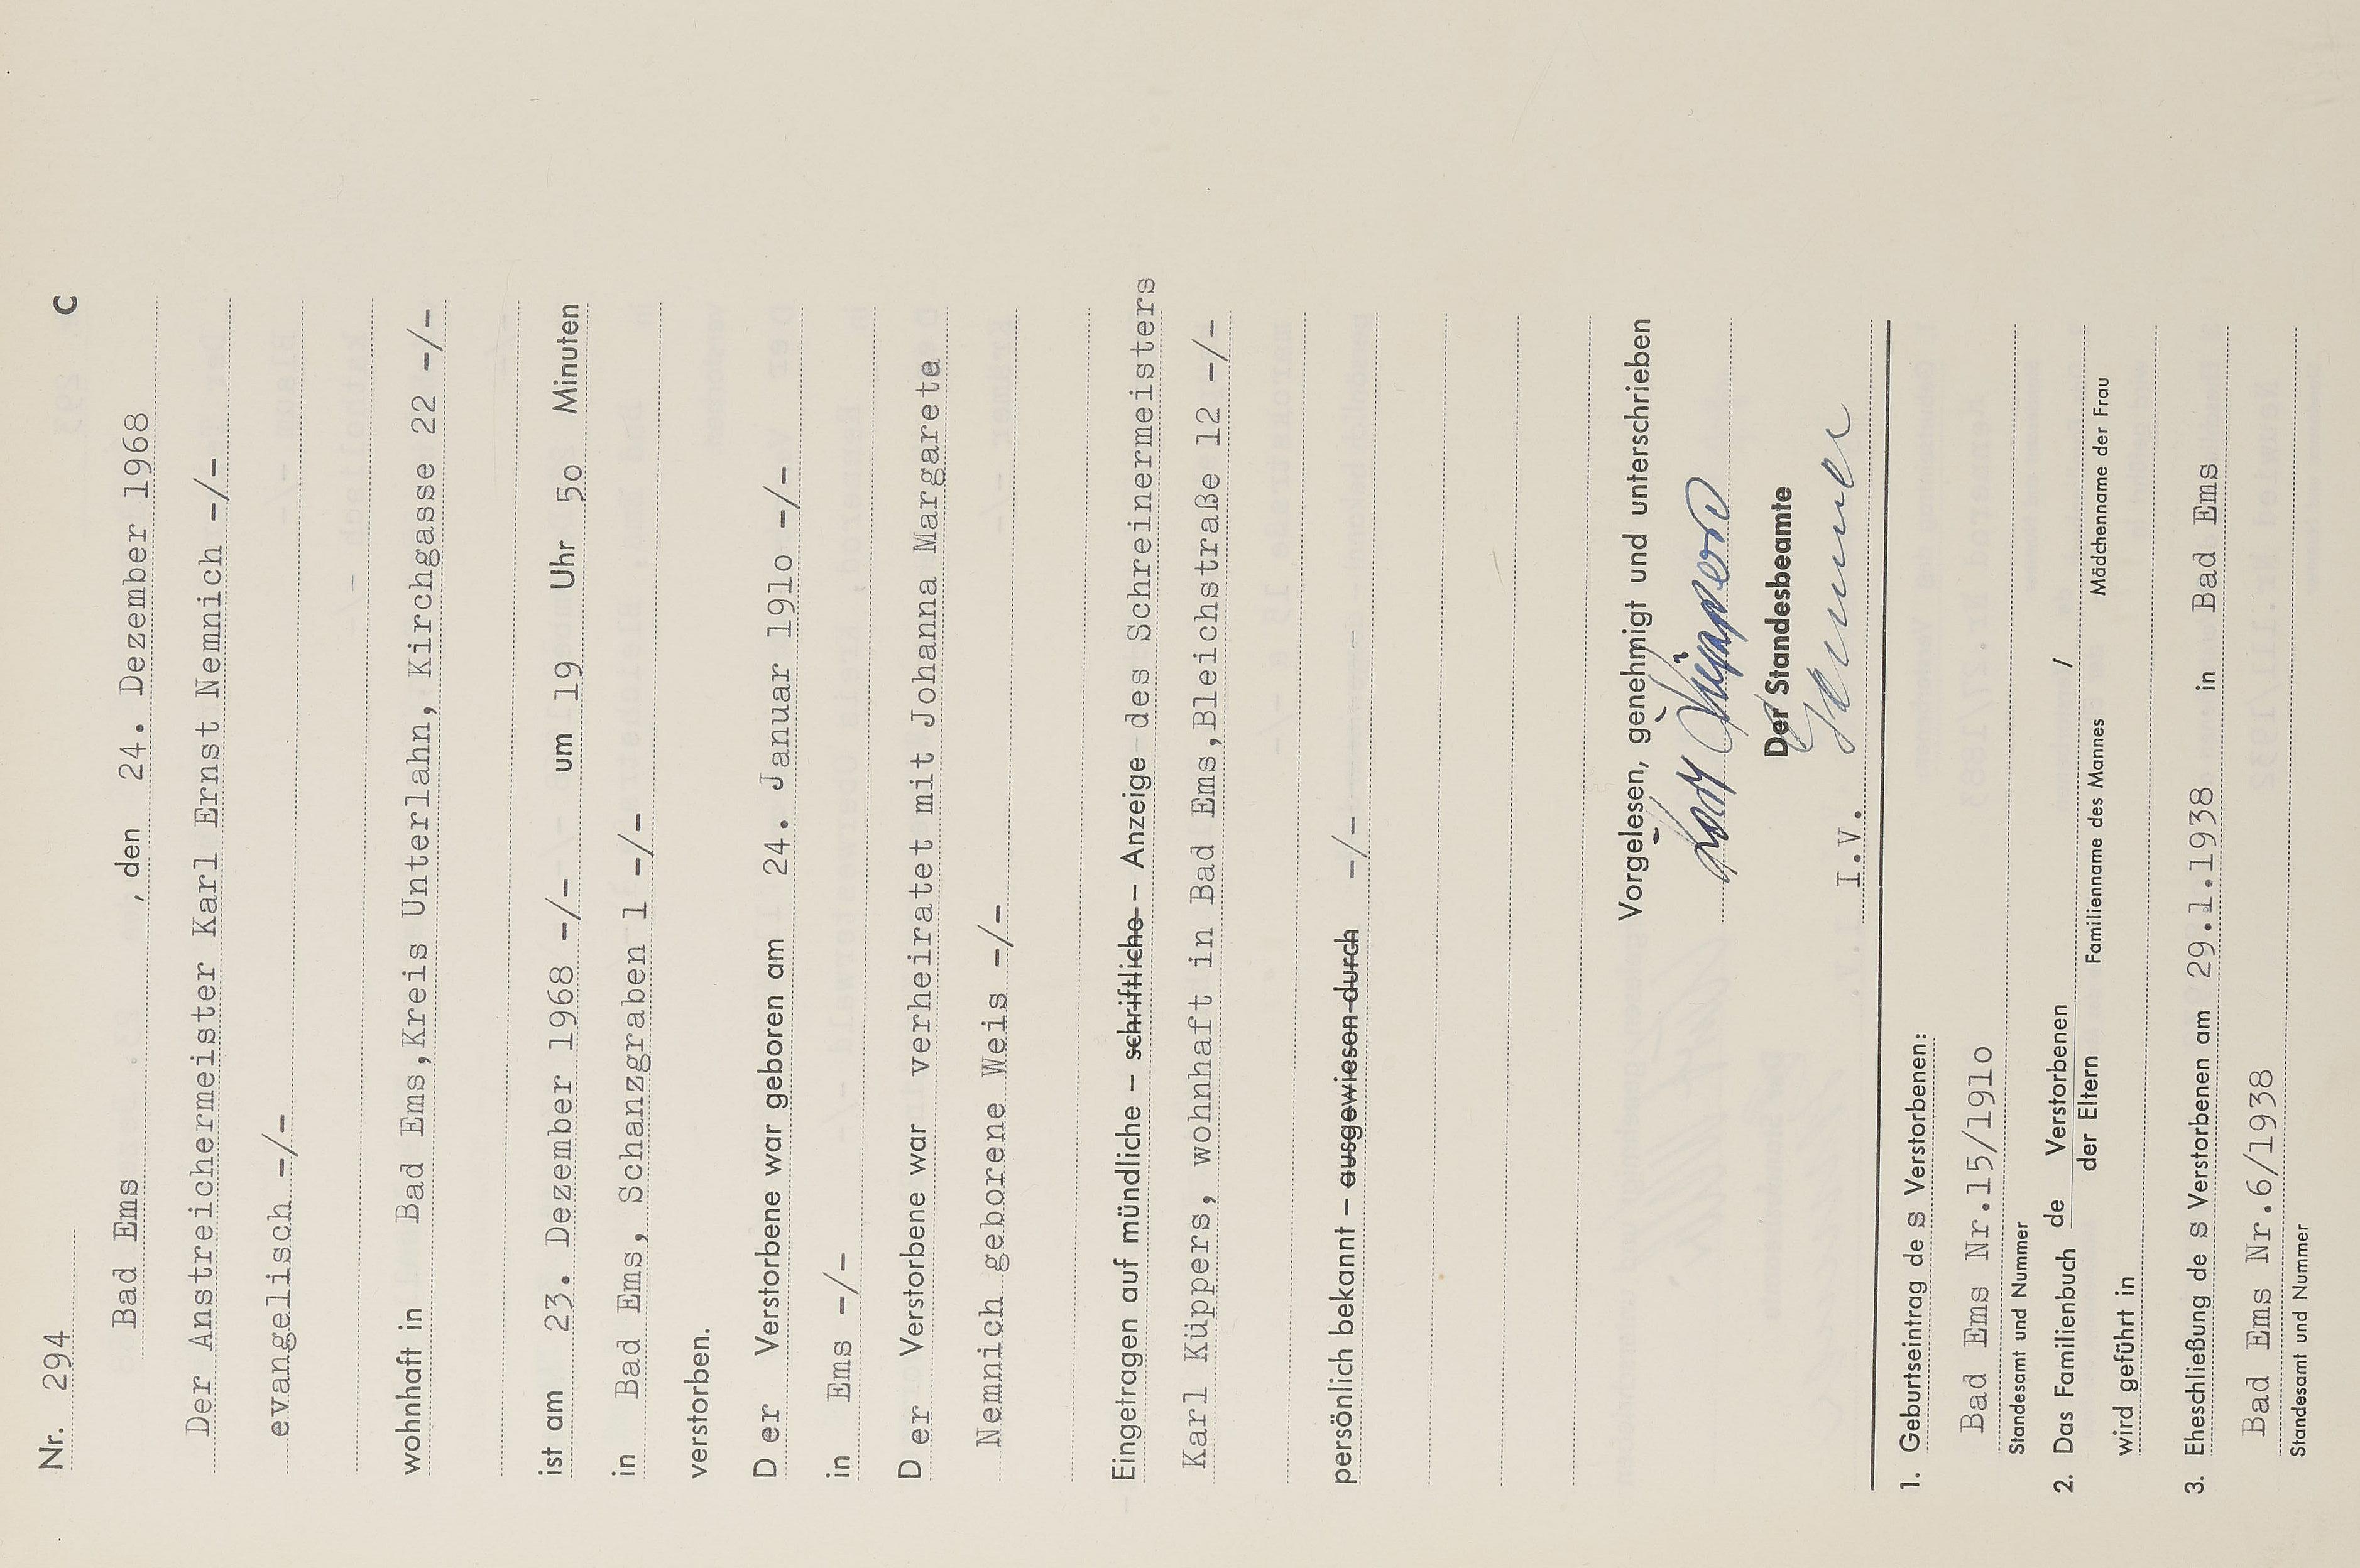 Nr. 294 C
Bad Ems , den 24. Dezember 1968
Der Anstreichermeister Karl Ernst Nemnich -/-
evangelisch -/-
wohnhaft in Bad Ems,Kreis Unterlahn, Kirchgasse 22 -/-
ist am 23. Dezember 1968 -/- um 19 Uhr 5o Minuten
in Bad Ems, Schanzgraben 1 -/-
verstorben.
D er Verstorbene war geboren am 24. Januar 191o -/-
in Ems -/-
D er Verstorbene war verheiratet mit Johanna Margarete
Nemnich geborene Weis -/-
Eingetragen auf mündliche – schriftliche – Anzeige des Schreinermeisters
Karl Küppers, wohnhaft in Bad Ems,Bleichstraße 12 -/-
persönlich bekannt – ausgewiesen durch -/-
Vorgelesen, genehmigt und unterschrieben
Karl Küppers
Der Standesbeamte
I.V.
1. Geburtseintrag de s Verstorbenen:
Bad Ems Nr.15/191o
Standesamt und Nummer
2. Das Familienbuch de Verstorbenen /
der Eltern Familienname des Mannes Mädchenname der Frau
wird geführt in
3. Eheschließung de s Verstorbenen am 29.1.1938 in Bad Ems
Bad Ems Nr.6/1938
Standesamt und Nummer